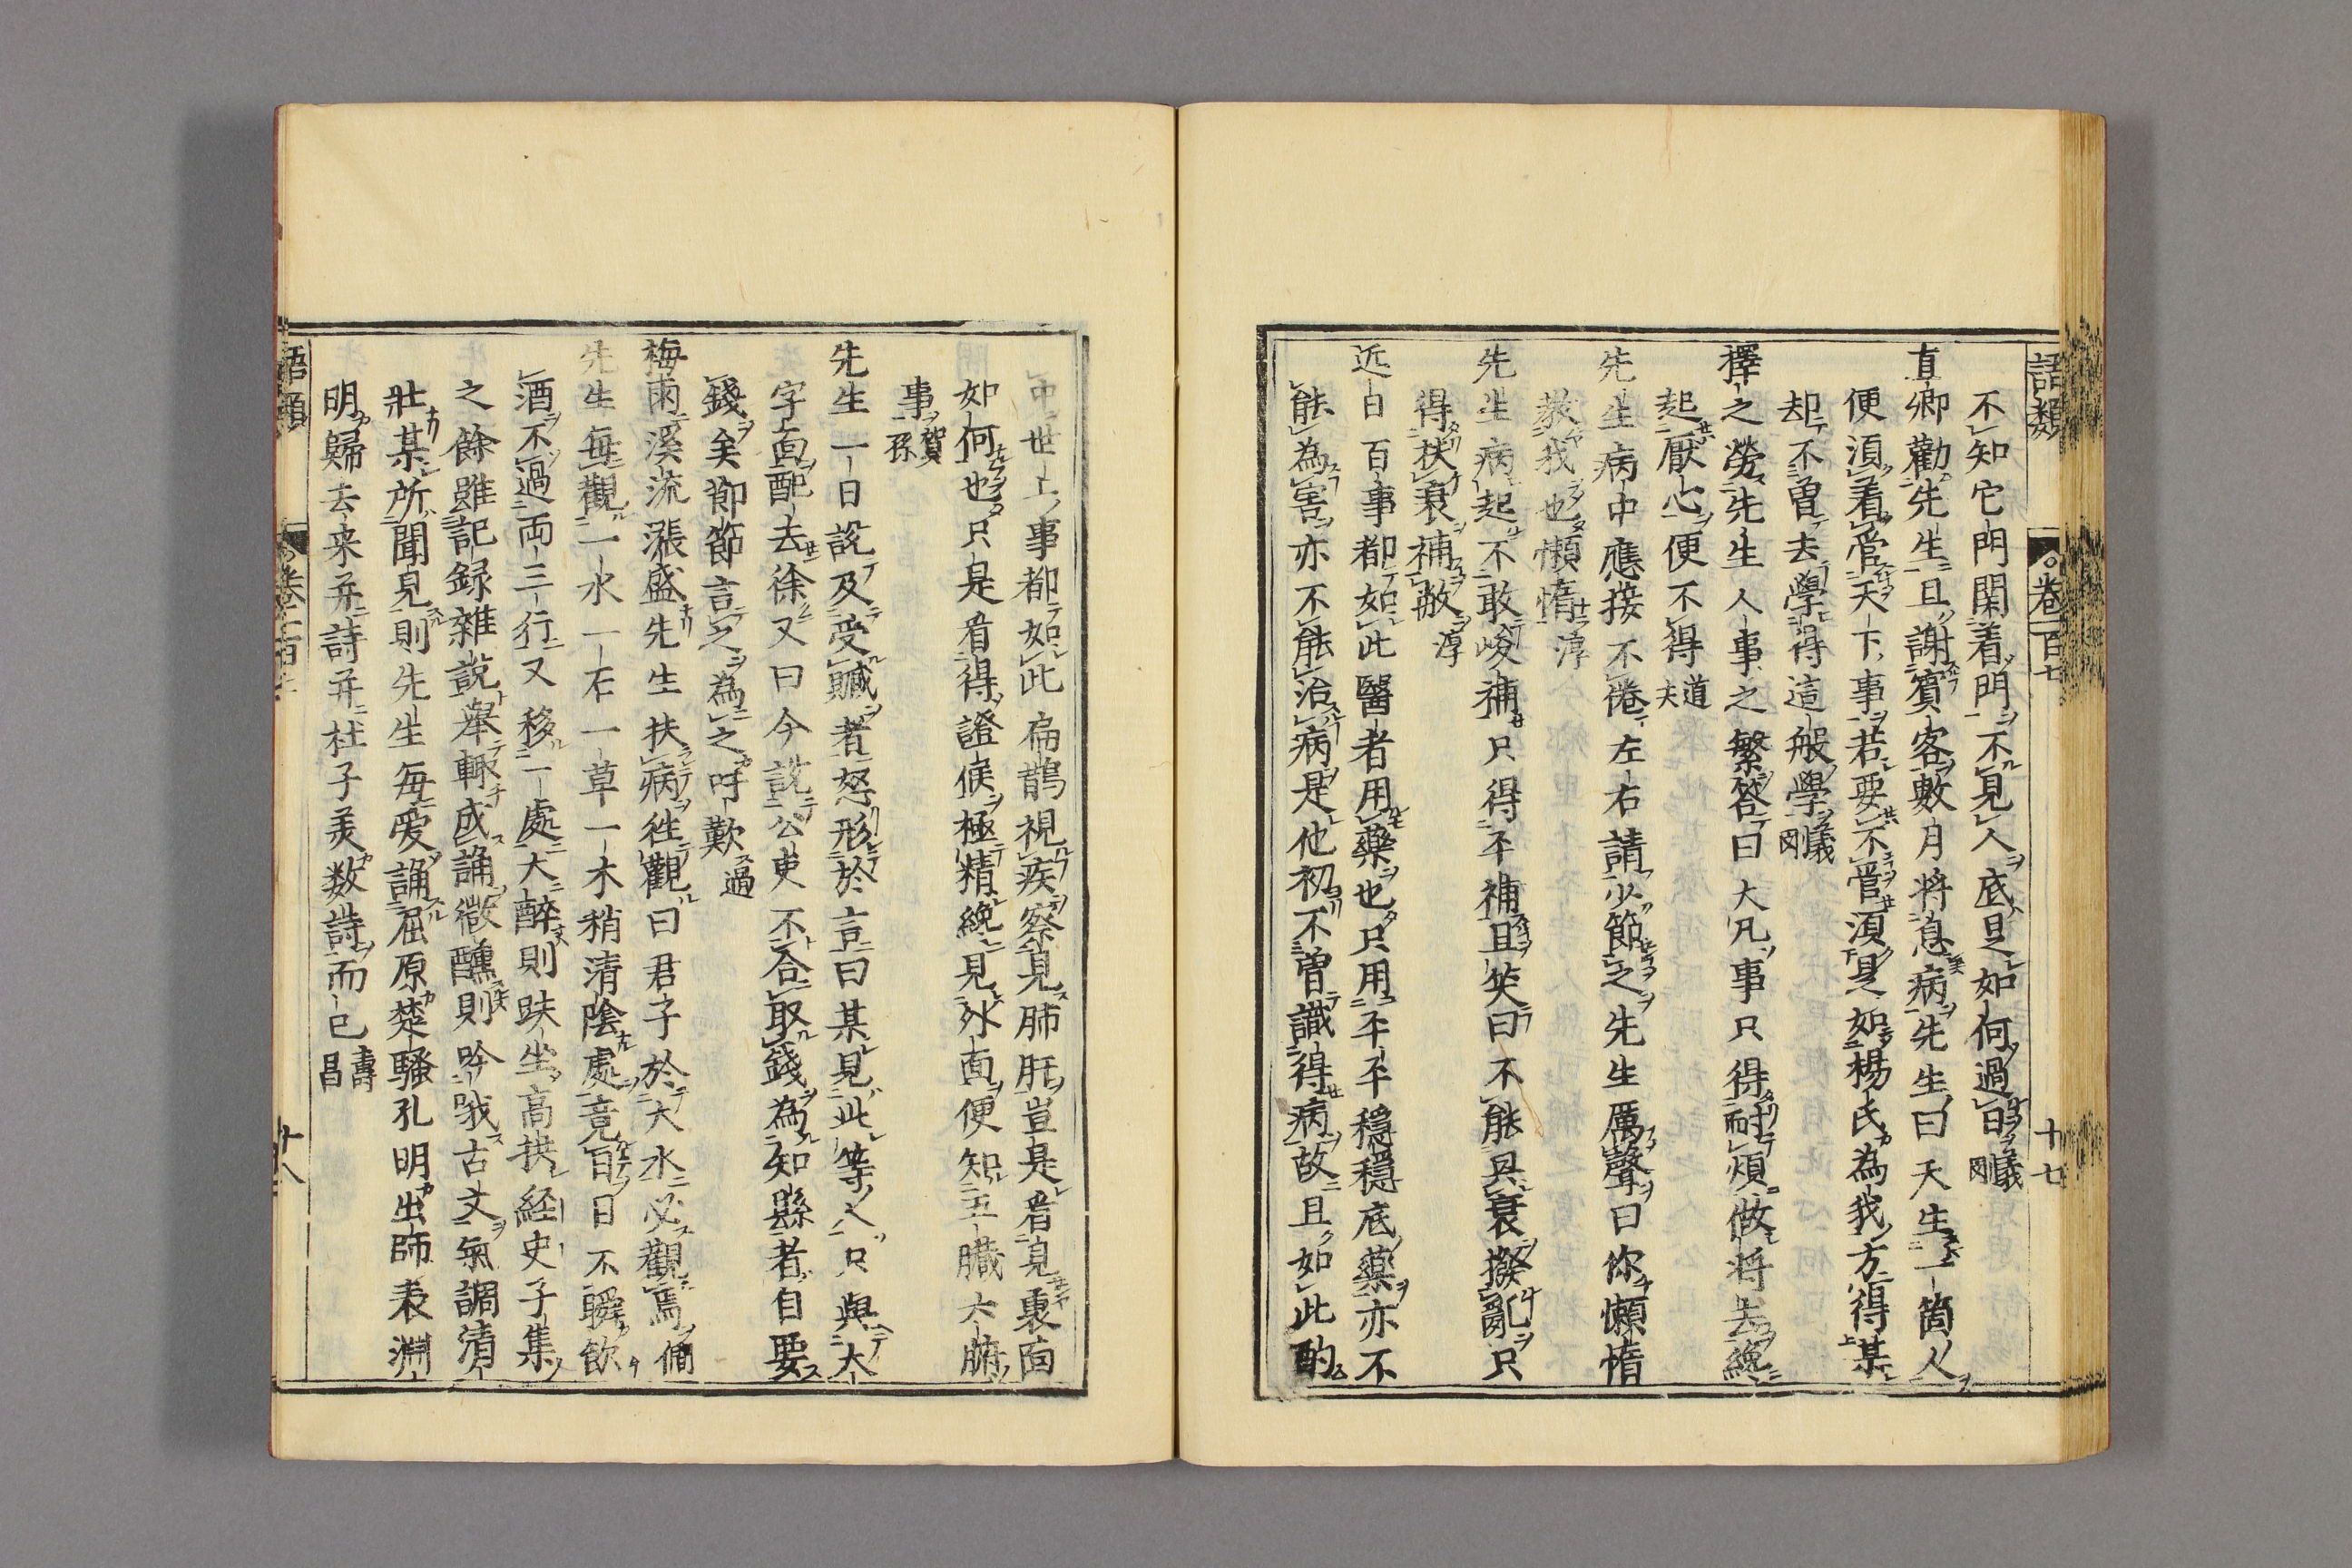 語類
卷一百七
十七
不知它門関着門不見人底是如何過日義剛
直卿勸先生且謝賓客數月將息病先生曰天生一箇人
便須着管天下事若要不管須是如楊氏為我方得某
却不曽去學得這般學義剛
擇之勞先生人事之繁答曰大凡事只得耐煩做將去纔
起厭心便不得道夫
先生病中應接不倦左右請少節之先生厲聲曰你懶惰
教我也懶惰淳
先生病起不敢峻補只得平補且笑曰不能興衰撥亂只
得扶衰補敝淳
近日百事都如此醫者用藥也只用平平穩穩底藥亦不
能為害亦不能治病是他初不曽識得病故且如此酌
中世上事都如此扁鵲視疾察見肺肝豈是看見裏面
如何也只是看得證候極精纔見外面便知五臟六腑
事賀孫
先生一日說及受贓者怒形於言曰某見此等人只與大
字面配去徐又曰今說公吏不合取錢為知縣者自要
錢矣節節言之為之吁歎過
梅雨溪流漲盛先生扶病往觀曰君子於大水必觀焉僩
先生每觀一水一石一草一木稍清陰處竟日目不瞬飲
酒不過両三行又移一處大醉則趺坐高拱経史子集
之餘雖記録雜說舉輒成誦微醺則吟哦古文氣調清
壯某所聞見則先生毎愛誦屈原楚騷孔明出師表淵
明歸去来并詩并杜子美数詩而已壽昌
語類
卷一百七
十八